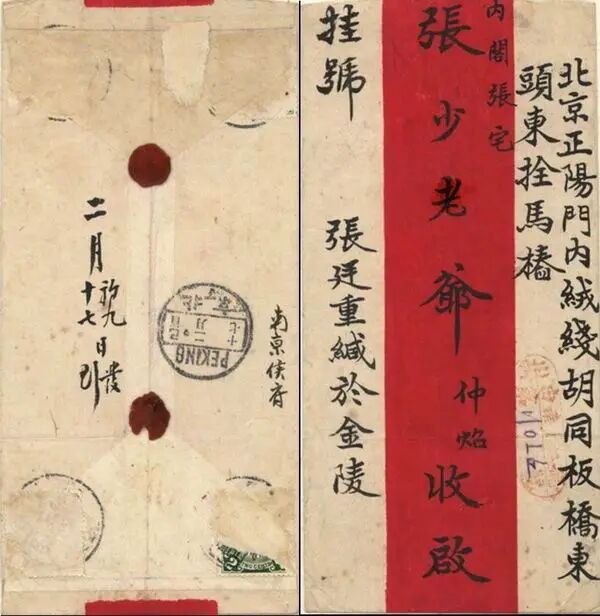 北京正陽門內絨綫胡同板橋東
頭東拴馬樁
內閣張宅
張少老爺仲炤收啟
挂號
張廷重緘於金陵
南京侯府
PEKING
北京
二月初九日發
十七日到